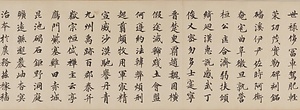 世祿侈富車駕肥輕
策功茂實勒碑刻銘
磻溪伊尹佐時阿衡
奄宅曲阜微旦孰營
桓公匡合濟弱扶傾
綺迴漢惠說感武丁
俊乂密勿多士寔寧
晉楚更霸趙魏困橫
假途滅虢踐土會盟
何遵約法韓弊煩刑
起翦頗牧用軍最精
宣威沙漠馳譽丹青
九州禹跡百郡秦并
嶽宗恒岱禪主云亭
雁門紫塞雞田赤城
昆池碣石鉅野洞庭
曠遠緜邈巖岫杳冥
治本於農務茲稼穡